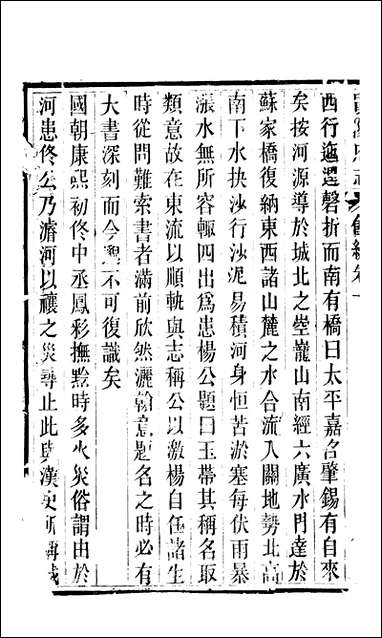 西行迤邐磬折而南有橋曰太平嘉名肇錫有自來
矣按河源導於城北之壁巃山南經六廣水門達於
蘇家橋復納東西諸山麓之水合流入關地勢北高
南下水抉沙行沙泥易積河身恒苦淤塞每伏雨暴
漲水無所容輒四出爲患楊公題曰玉帶其稱名取
類意故在東流以順軌與志稱公以激楊自任諸生
時從問難索書者滿前欣然灑翰意題名之時必有
大書深刻而今不可復識矣
國朝康熙初佟中丞鳳彩撫黔時多火災俗謂由於
河患佟公乃濬河以禳之災尋止此與漢史所稱